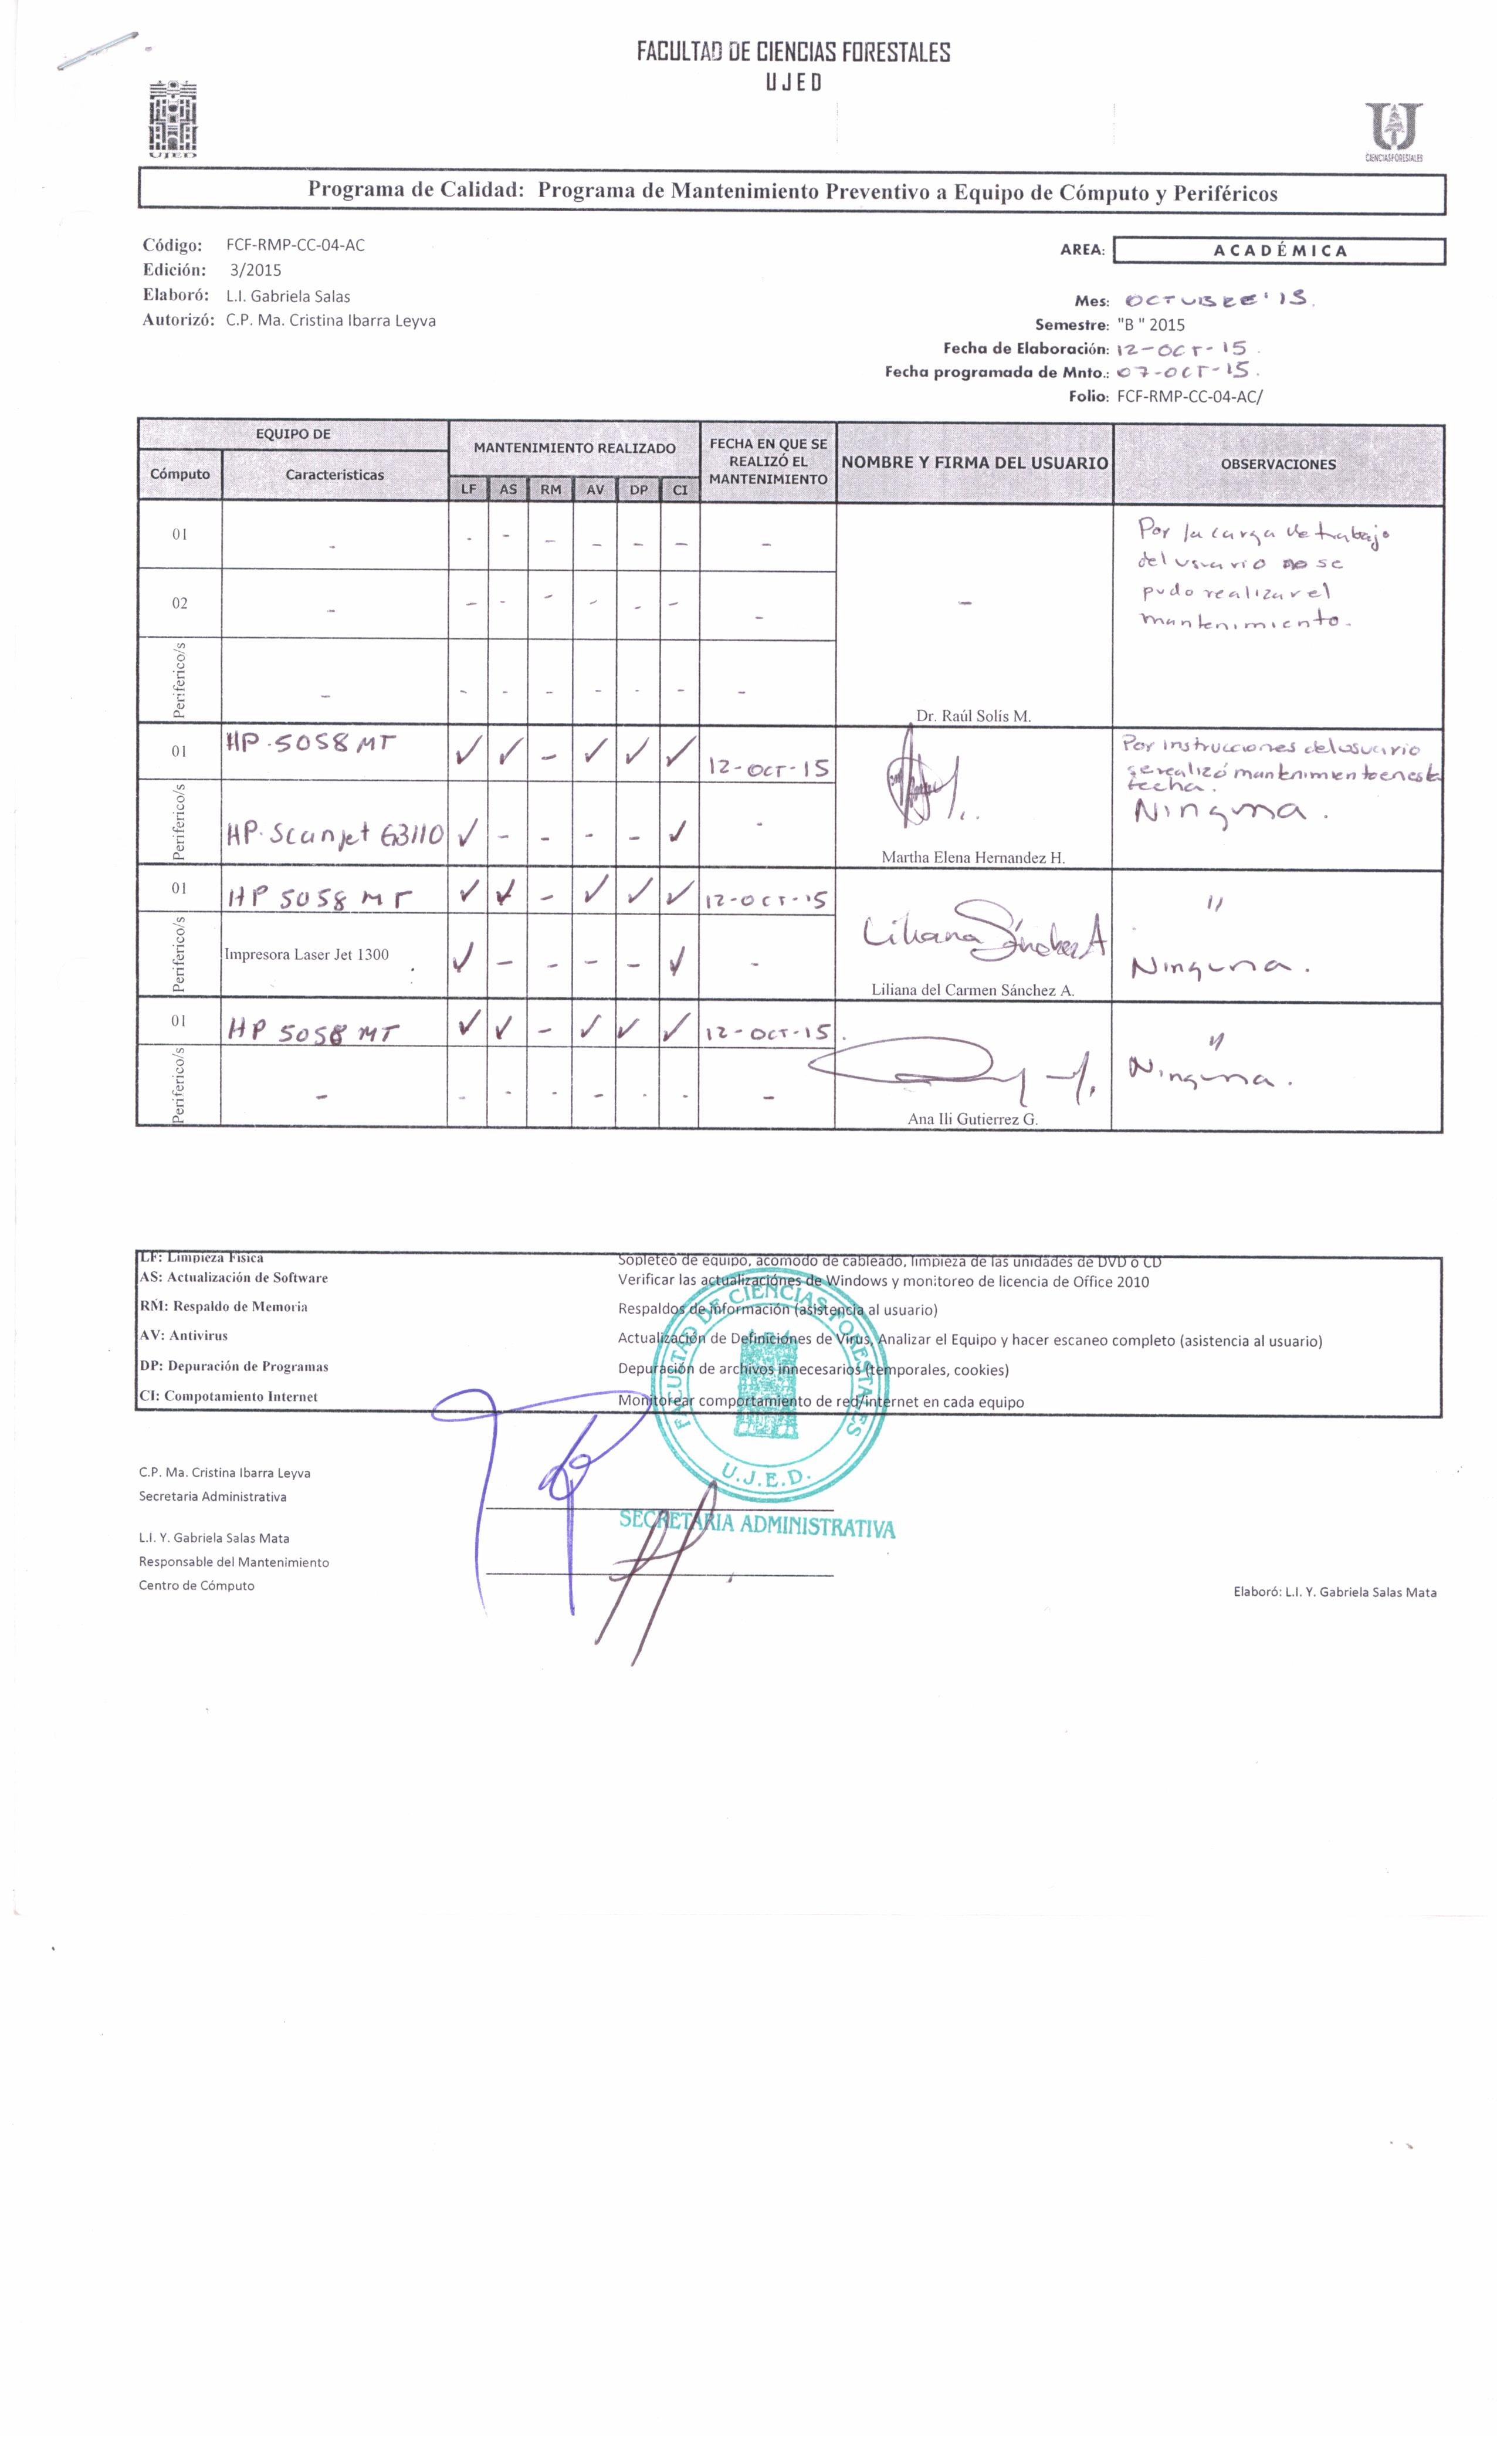 FACULTAD DE CIENCIAS FORESTALES
UJED
UJED
CIENCIAS FORESTALES
Programa de Calidad: Programa de Mantenimiento Preventivo a Equipo de Cómputo y Periféricos
Código: FCF-RMP-CC-04-AC
Edición: 3/2015
Elaboró: L.I. Gabriela Salas
Autorizó: C.P. Ma. Cristina Ibarra Leyva
AREA: ACADÉMICA
Mes: OCTUBRE'15.
Semestre: "B " 2015
Fecha de Elaboración: 12-OCT-15.
Fecha programada de Mnto.: 07-OCT-15.
Folio: FCF-RMP-CC-04-AC/
EQUIPO DE
Cómputo Caracteristicas
MANTENIMIENTO REALIZADO
LF AS RM AV DP CI
FECHA EN QUE SE REALIZÓ EL MANTENIMIENTO
NOMBRE Y FIRMA DEL USUARIO
OBSERVACIONES
01 - - - - - - - -
02 - - - - - - - -
Periferico/s - - - - - - - -
-
Dr. Raúl Solís M.
Por la carga de trabajo
del usuario no se
pudo realizar el
mantenimiento.
01 HP.5058 MT ✓ ✓ - ✓ ✓ ✓ 12-OCT-15
Periferico/s HP. Scanjet G3110 ✓ - - - - ✓ -
Martha Elena Hernandez H.
Por instrucciones del usuario
se realizó mantenimiento en esta
fecha.
Ninguna.
01 HP 5058 MT ✓ ✓ - ✓ ✓ ✓ 12-OCT-15
Periferico/s Impresora Laser Jet 1300 ✓ - - - - ✓ -
Liliana Sánchez A
Liliana del Carmen Sánchez A.
"
Ninguna.
01 HP 5058 MT ✓ ✓ - ✓ ✓ ✓ 12-OCT-15.
Periferico/s - - - - - - - -
Ana Ili Gutierrez G.
"
Ninguna.
LF: Limpieza Fisica Sopleteo de equipo, acomodo de cableado, limpieza de las unidades de DVD o CD
AS: Actualización de Software Verificar las actualizaciónes de Windows y monitoreo de licencia de Office 2010
RM: Respaldo de Memoria Respaldos de información (asistencia al usuario)
AV: Antivirus Actualización de Definiciones de Virus, Analizar el Equipo y hacer escaneo completo (asistencia al usuario)
DP: Depuración de Programas Depuración de archivos innecesarios (temporales, cookies)
CI: Compotamiento Internet Monitorear comportamiento de red/internet en cada equipo
FACULTAD DE CIENCIAS FORESTALES
U.J.E.D.
SECRETARIA ADMINISTRATIVA
C.P. Ma. Cristina Ibarra Leyva
Secretaria Administrativa
L.I. Y. Gabriela Salas Mata
Responsable del Mantenimiento
Centro de Cómputo
Elaboró: L.I. Y. Gabriela Salas Mata